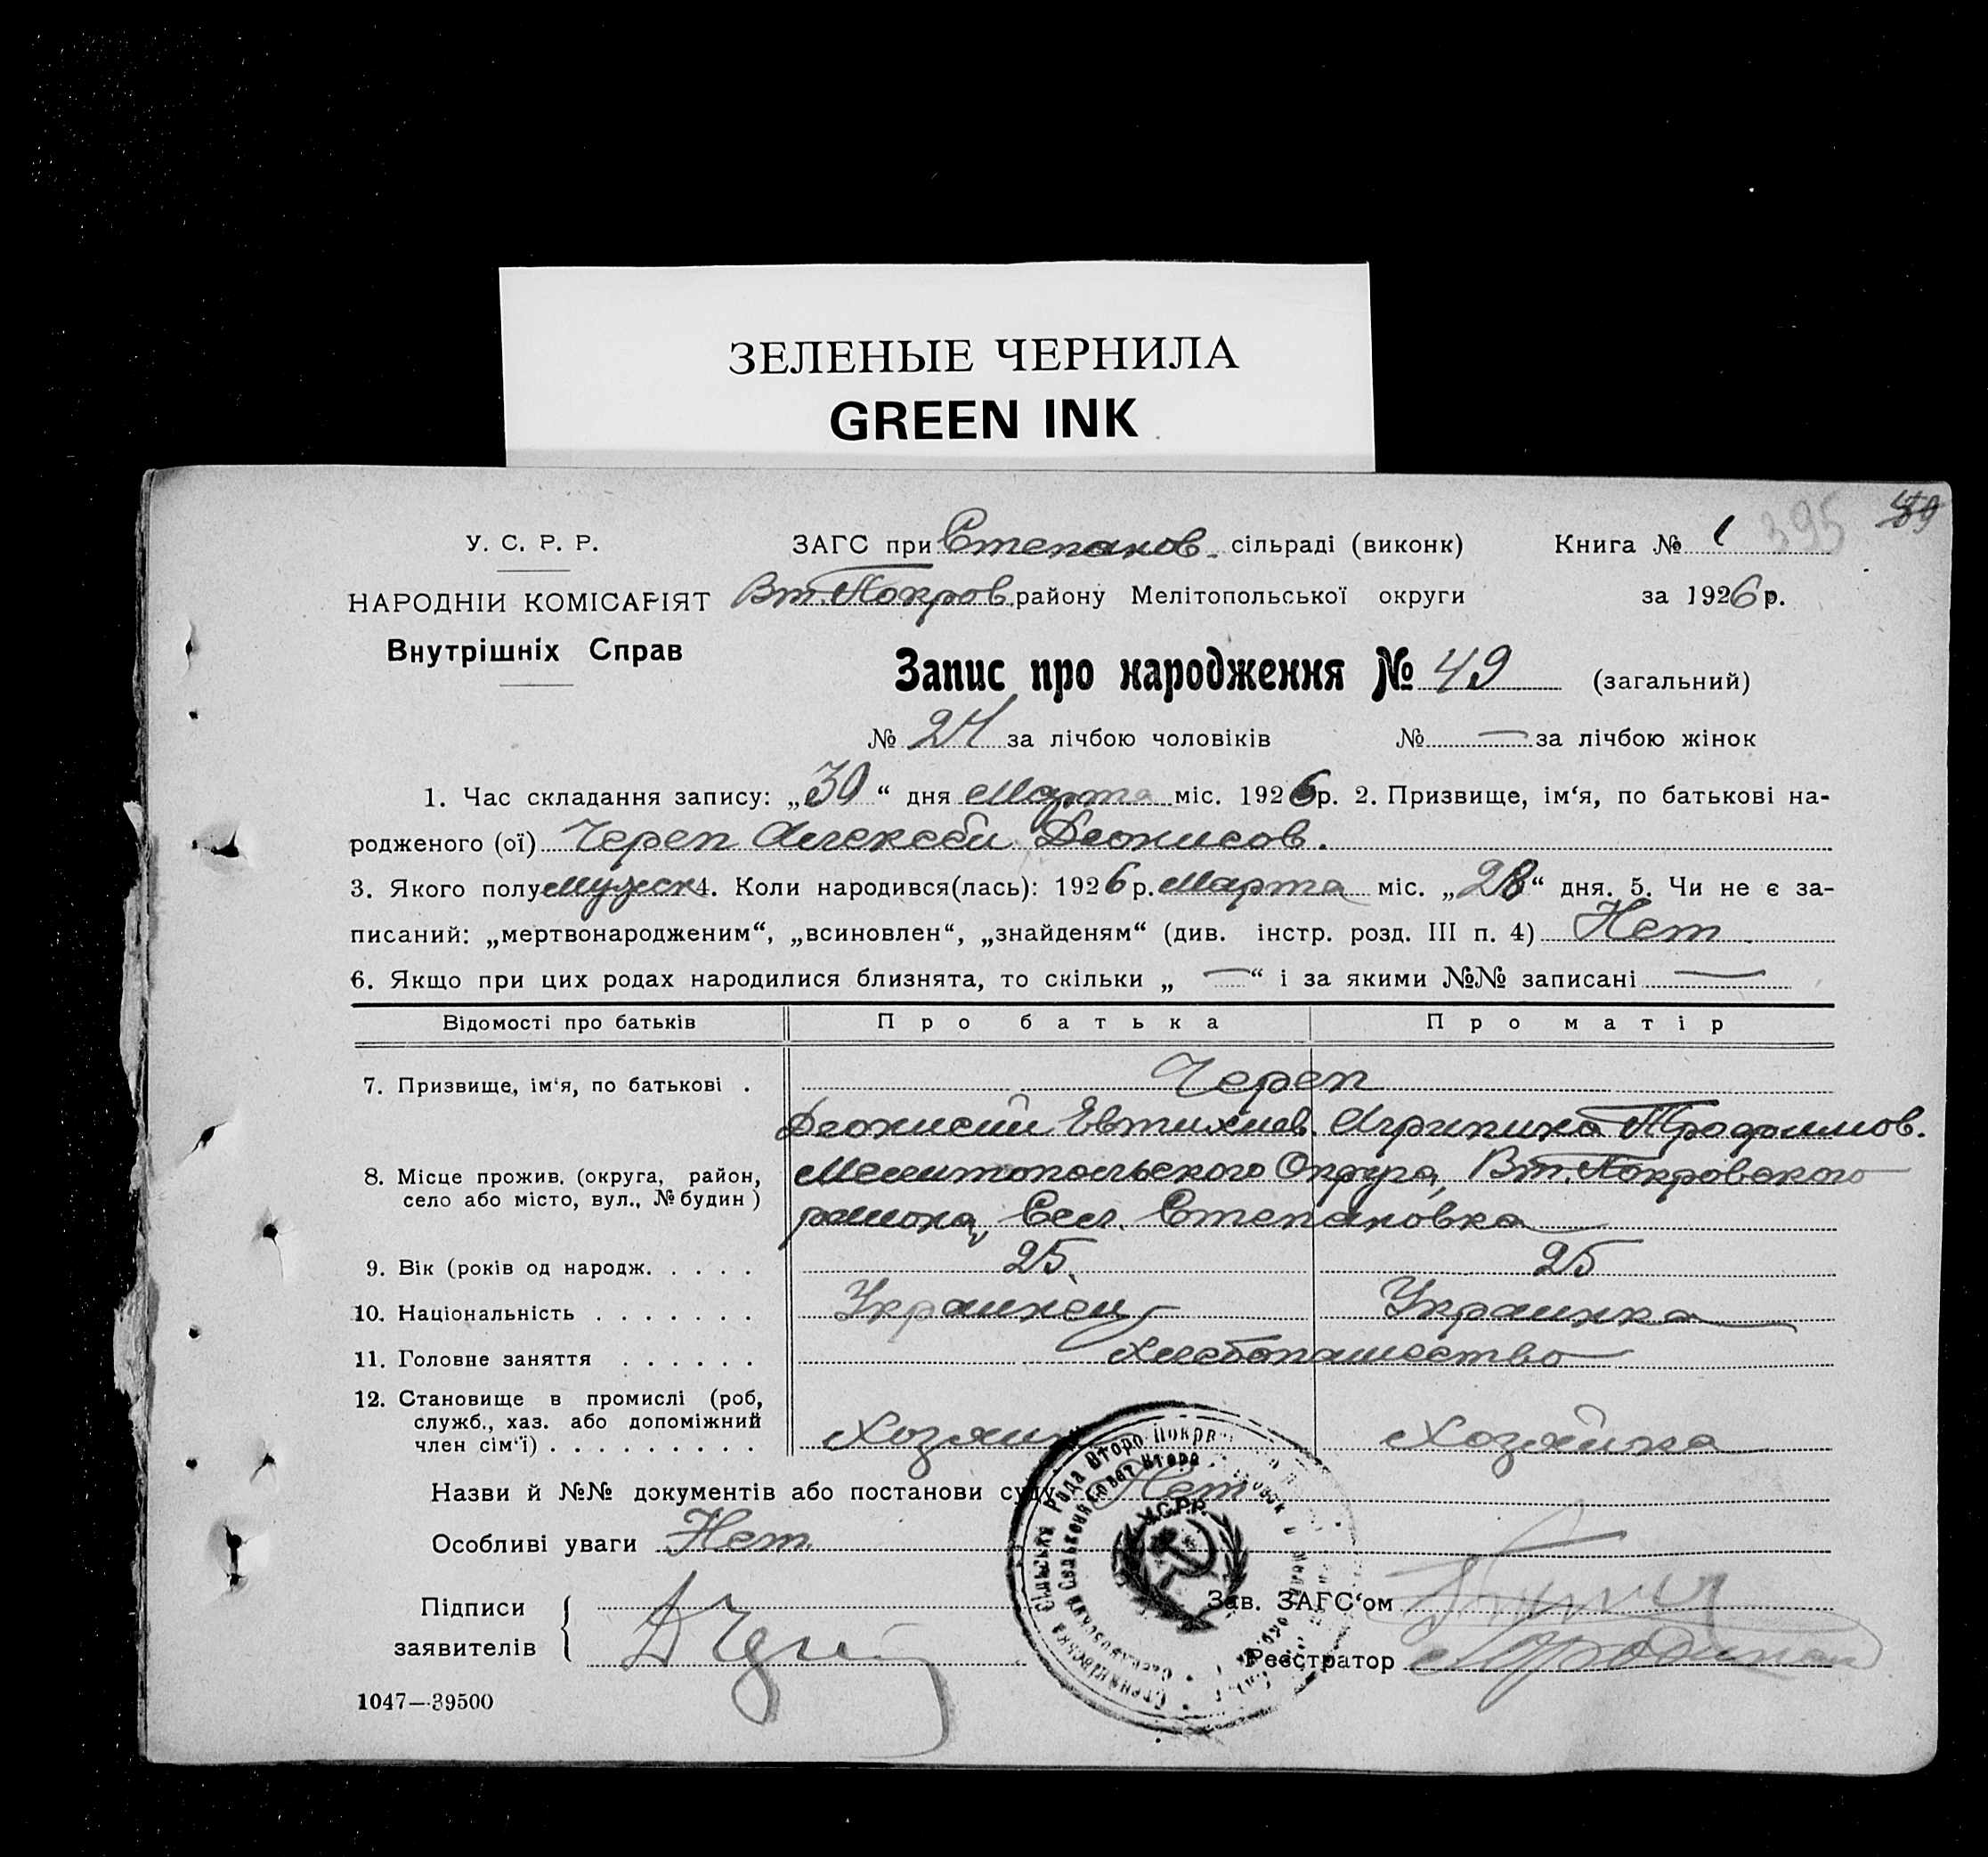 ЗЕЛЕНЫЕ ЧЕРНИЛА
GREEN INK
395 49
У. С. Р. Р. ЗАГС при Степанов. сільраді (виконк) Книга № 1
НАРОДНІЙ КОМІСАРІЯТ Вт. Покров. району Мелітопольської округи за 1926 р.
Внутрішніх Справ
Запис про народження № 49 (загальний)
№ 24 за лічбою чоловіків № — за лічбою жінок
1. Час складання запису: „30“ дня Марта міс. 1926 р. 2. Призвище, ім‘я, по батькові на-
родженого (ої) Череп Алексей Деонисов.
3. Якого полу Мужск 4. Коли народився(лась): 1926 р. Марта міс. „28“ дня. 5. Чи не є за-
писаний: „мертвонародженим“, „всиновлен“, „знайденям“ (див. інстр. розд. III п. 4) Нет
6. Якщо при цих родах народилися близнята, то скільки „ — “ і за якими №№ записані —
Відомості про батьків Про батька Про матір
7. Призвище, ім‘я, по батькові . Череп
Деонисий Евтихиев. Агрипина Трофимов.
8. Місце прожив. (округа, район, село або місто, вул., № будин) Мелитопольского Округа, Вт. Покровского
района, Сел. Степановка
9. Вік (років од народж. . . . . 25. 25
10. Національність . . . . . . . Украинец Украинка
11. Головне заняття . . . . . . Хлебопашество
12. Становище в промислі (роб,
служб., хаз. або допоміжний
член сім‘ї) . . . . . . . . . Хозяин Хозяйка
Назви й №№ документів або постанови суду Нет
Особливі уваги Нет
У.С.Р.Р.
Підписи
заявителів
Зав. ЗАГС‘ом
Реєстратор
1047—39500